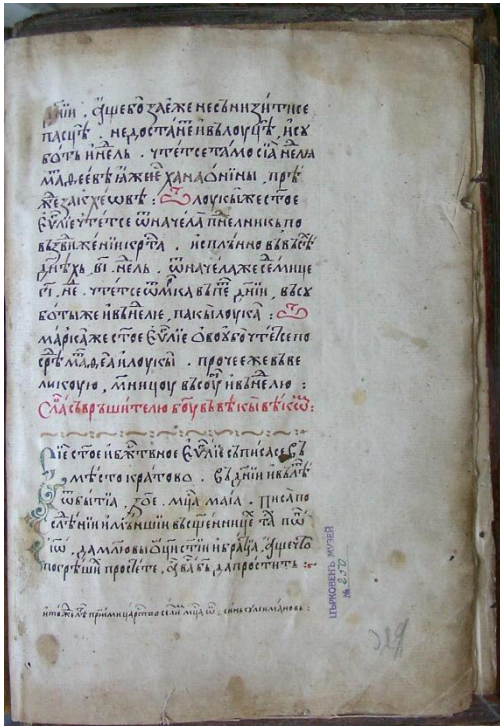 дн҃їи . аще бо за еже не сънизити се
пасцѣ . недостанетъ и въ лоуцѣ, и су
боты и нел҃ѣ . чтетсе тамо сїа нел҃ѧ
маѳеевѣ ꙗже ѥ ханаѡнины , прѣ
жⷣе закхеѡвѣ : Ѿ лоукы же ст҃ое
еѵⷢ҇лїе чтетсе ѿ начела пнⷣелникь по
въздвиженїи крⷭ҇та . исплънно въ въсѣ
днехь, ві . нел҃ь . ѿ начела же семⷣице
гі , не . чтетсе ѿ мрⷦ҇а въ пеⷮ дн҃їи , въ су
ботыже и въ нел҃ѥ , пакы лоука : Ѿ
марка же ст҃ое еѵⷢ҇лїе ѡбоубо чтетсе по
срⷣѣ маѳⷴеа и лоукы . прочее же въ ве
ликоую , м҃ницоу въ соуⷠ и въ нел҃ю :
Слⷡ҇а съвръшителю б҃оу въ вѣкы вѣкѡⷨ:
Сїе ст҃ое и бжⷭ҇твное еѵⷢ҇лїе съписа се въ
мѣсто кратово . въ дн҃їи и въ лѣⷮ
ѿ бытїа , мцⷭ҇а маїа . писа по
слѣⷣнїи и мъншїи въ сщ҃еннициⷯ поⷫ҇
іѡⷩ҇ , да молю вы ѡц҃и ст҃їи и братїа , аще что
погрѣшиⷯ простѣте , а вⷭ҇а бъ҃ да простить :
ЦЪРКОВЕНЪ МУЗЕЙ
№ 250